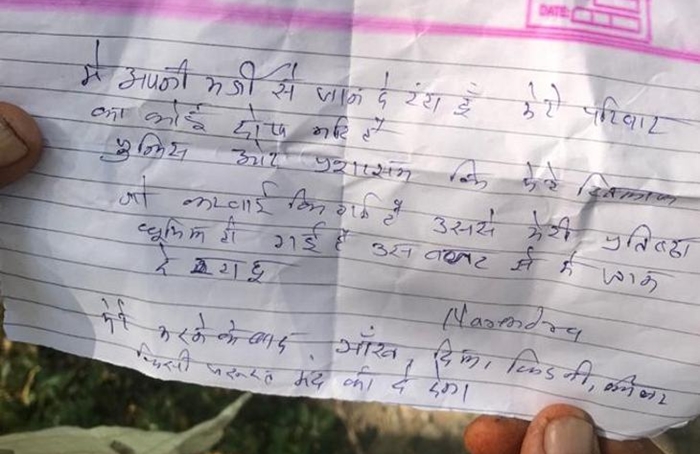 DATE:
में अपनी मर्जी से जान दे रहा हुँ मेरे परिवार
का कोई दोष नहि है
पुलिस ओर प्रशासन कि मेरे खिलाफ
जो करवाई कि गई है उससे मेरी प्रतिष्ठा
धुमिल हो गई है उस वजह से में जान
दे रहा हु
Narendra
मेरे मरने के बाद आँख, दिल, किडनी, लीवर
किसी जरुरत मंद को दे देना